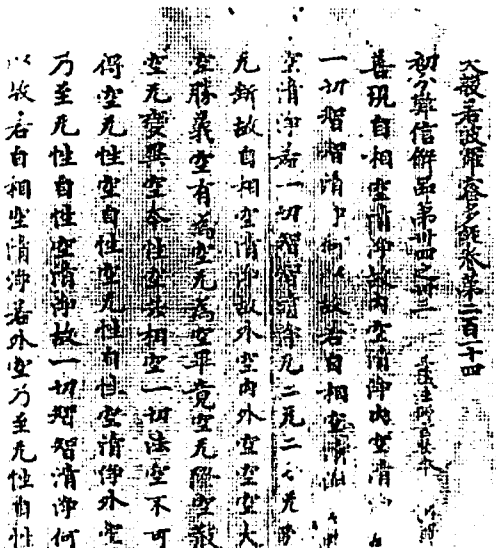 大般若波羅蜜多經卷第二百一十四
初分難信解品第卅四之卅三 三藏法師玄奘奉 詔譯
善現自相空清淨故內空清淨內空清淨故
一切智智清淨何以故若自相空清淨若內
空清淨若一切智智清淨无二无二分无別
无斷故自相空清淨故外空內外空空空大
空勝義空有為空无為空畢竟空无際空散
空无變異空本性空共相空一切法空不可
得空无性空自性空无性自性空清淨外空
乃至无性自性空清淨故一切智智清淨何
以故若自相空清淨若外空乃至无性自性